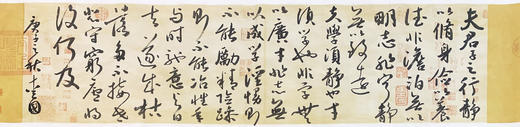 夫君子之行靜
以脩身儉以養
德非澹泊無以
明志非寧靜
無以致遠
夫學須靜也才
須學也非學無
以廣才非志無
以成學淫慢則
不能勵精險躁
則不能冶性年
與時馳意與日
去遂成枯
落多不接世
悲守窮廬將
復何及
庚子之秋